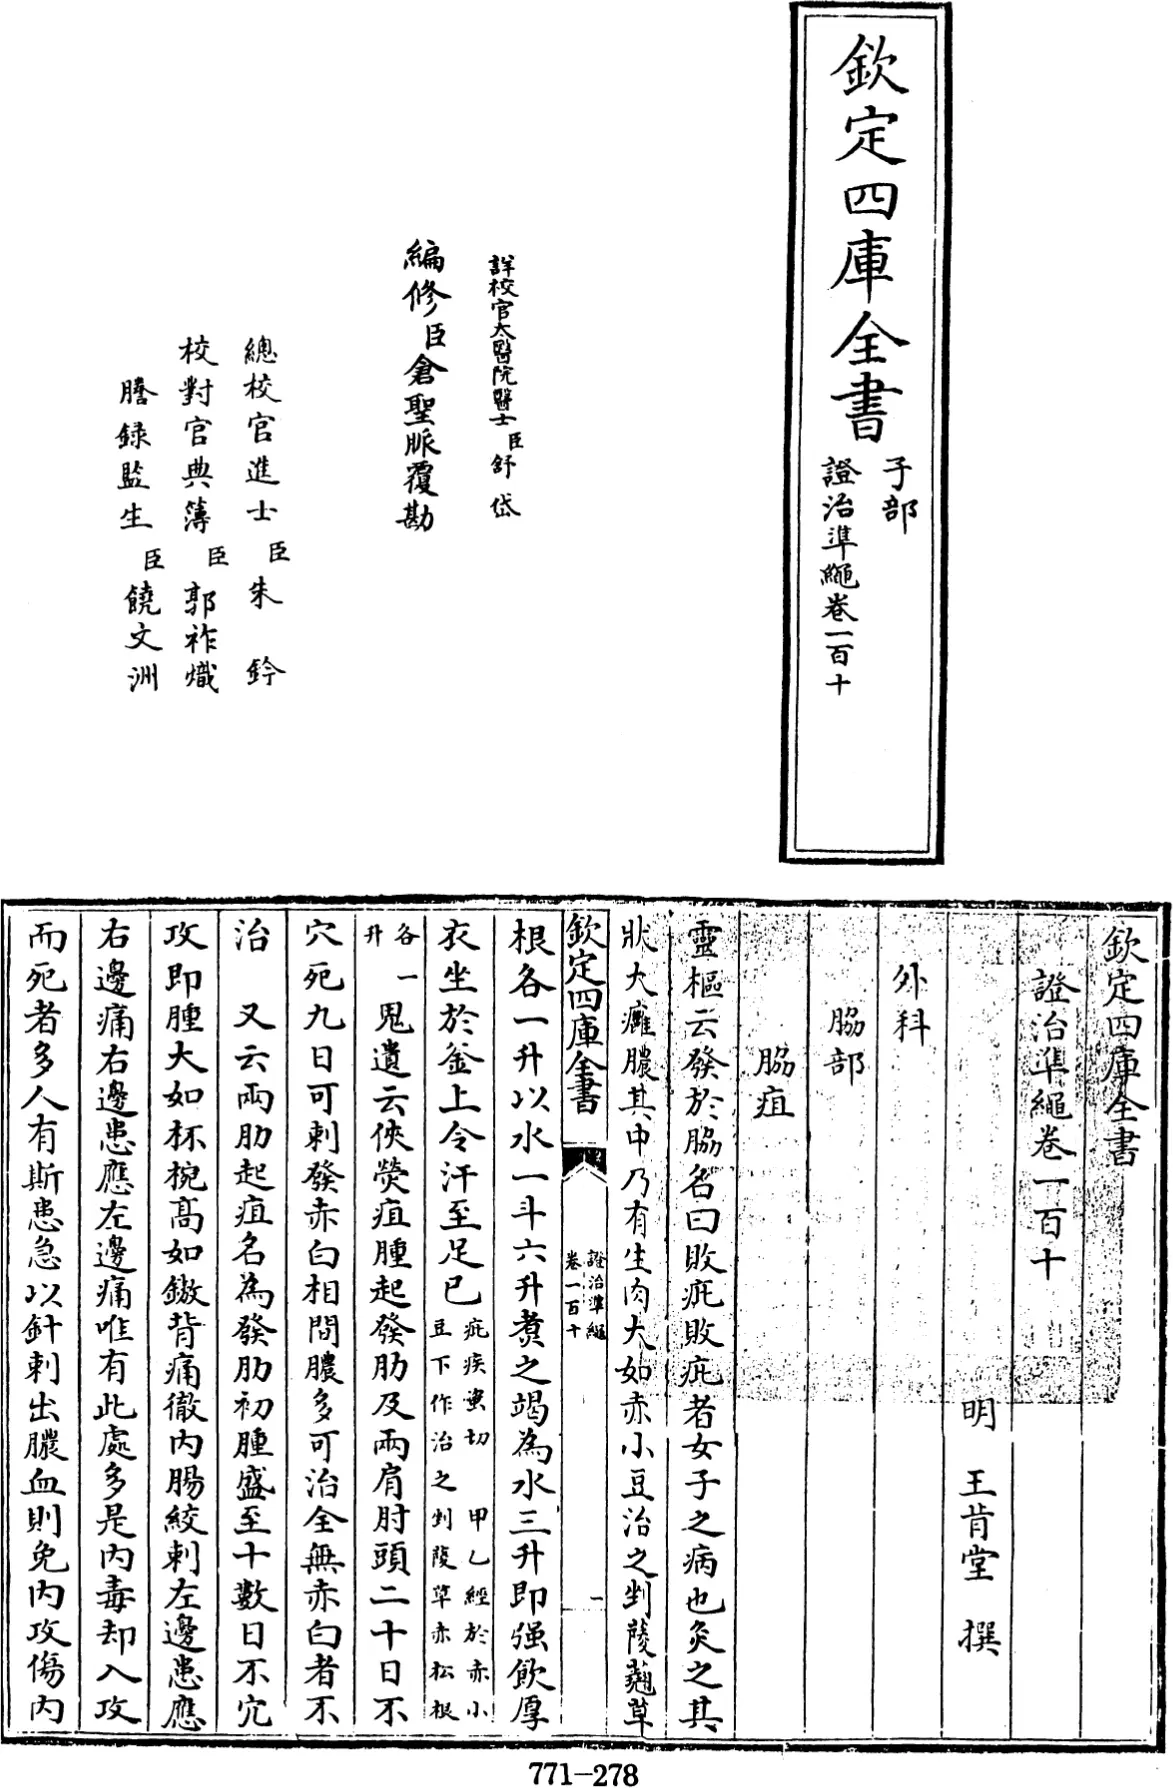 欽定四庫全書
子部
證治準繩卷一百十
詳校官太醫院醫士臣舒岱
編修臣倉聖脈覆勘
總校官進士臣朱鈐
校對官典簿臣郭祚熾
謄錄監生臣饒文洲
欽定四庫全書
證治準繩卷一百十
明 王肯堂 撰
外科
脇部
脇疽
靈樞云發於脇名曰敗疵敗疵者女子之病也灸之其
狀大癰膿其中乃有生肉大如赤小豆治之剉䔖䕍草
欽定四庫全書
證治準繩
卷一百十
一
根各一升以水一斗六升煮之竭為水三升即强飲厚
衣坐於釜上令汗至足已
疵疾蚩切 甲乙經於赤小
豆下作治之剉䔖草赤松根
各一
升
鬼遺云俠熒疽腫起發肋及兩肩肘頭二十日不
穴死九日可刺發赤白相間膿多可治全無赤白者不
治 又云兩肋起疽名為發肋初腫盛至十數日不穴
攻即腫大如杯椀高如䥝背痛徹内腸絞刺左邊患應
右邊痛右邊患應左邊痛唯有此處多是内毒却入攻
而死者多人有斯患急以針刺出膿血則免内攻傷内
771-278